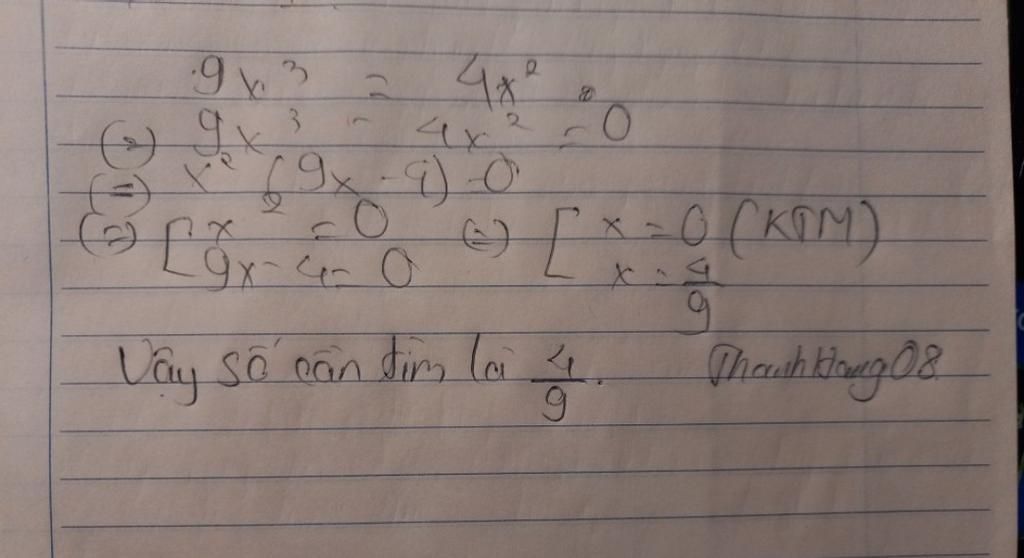 9x³ = 4x²
(=) 9x³ - 4x² = 0
(=) x² (9x - 4) = 0
(=) [ x² = 0 (=) [ x = 0 (KTM)
9x - 4 = 0 x = 4/9
Vậy số cần tìm là 4/9.
ThanhHang08